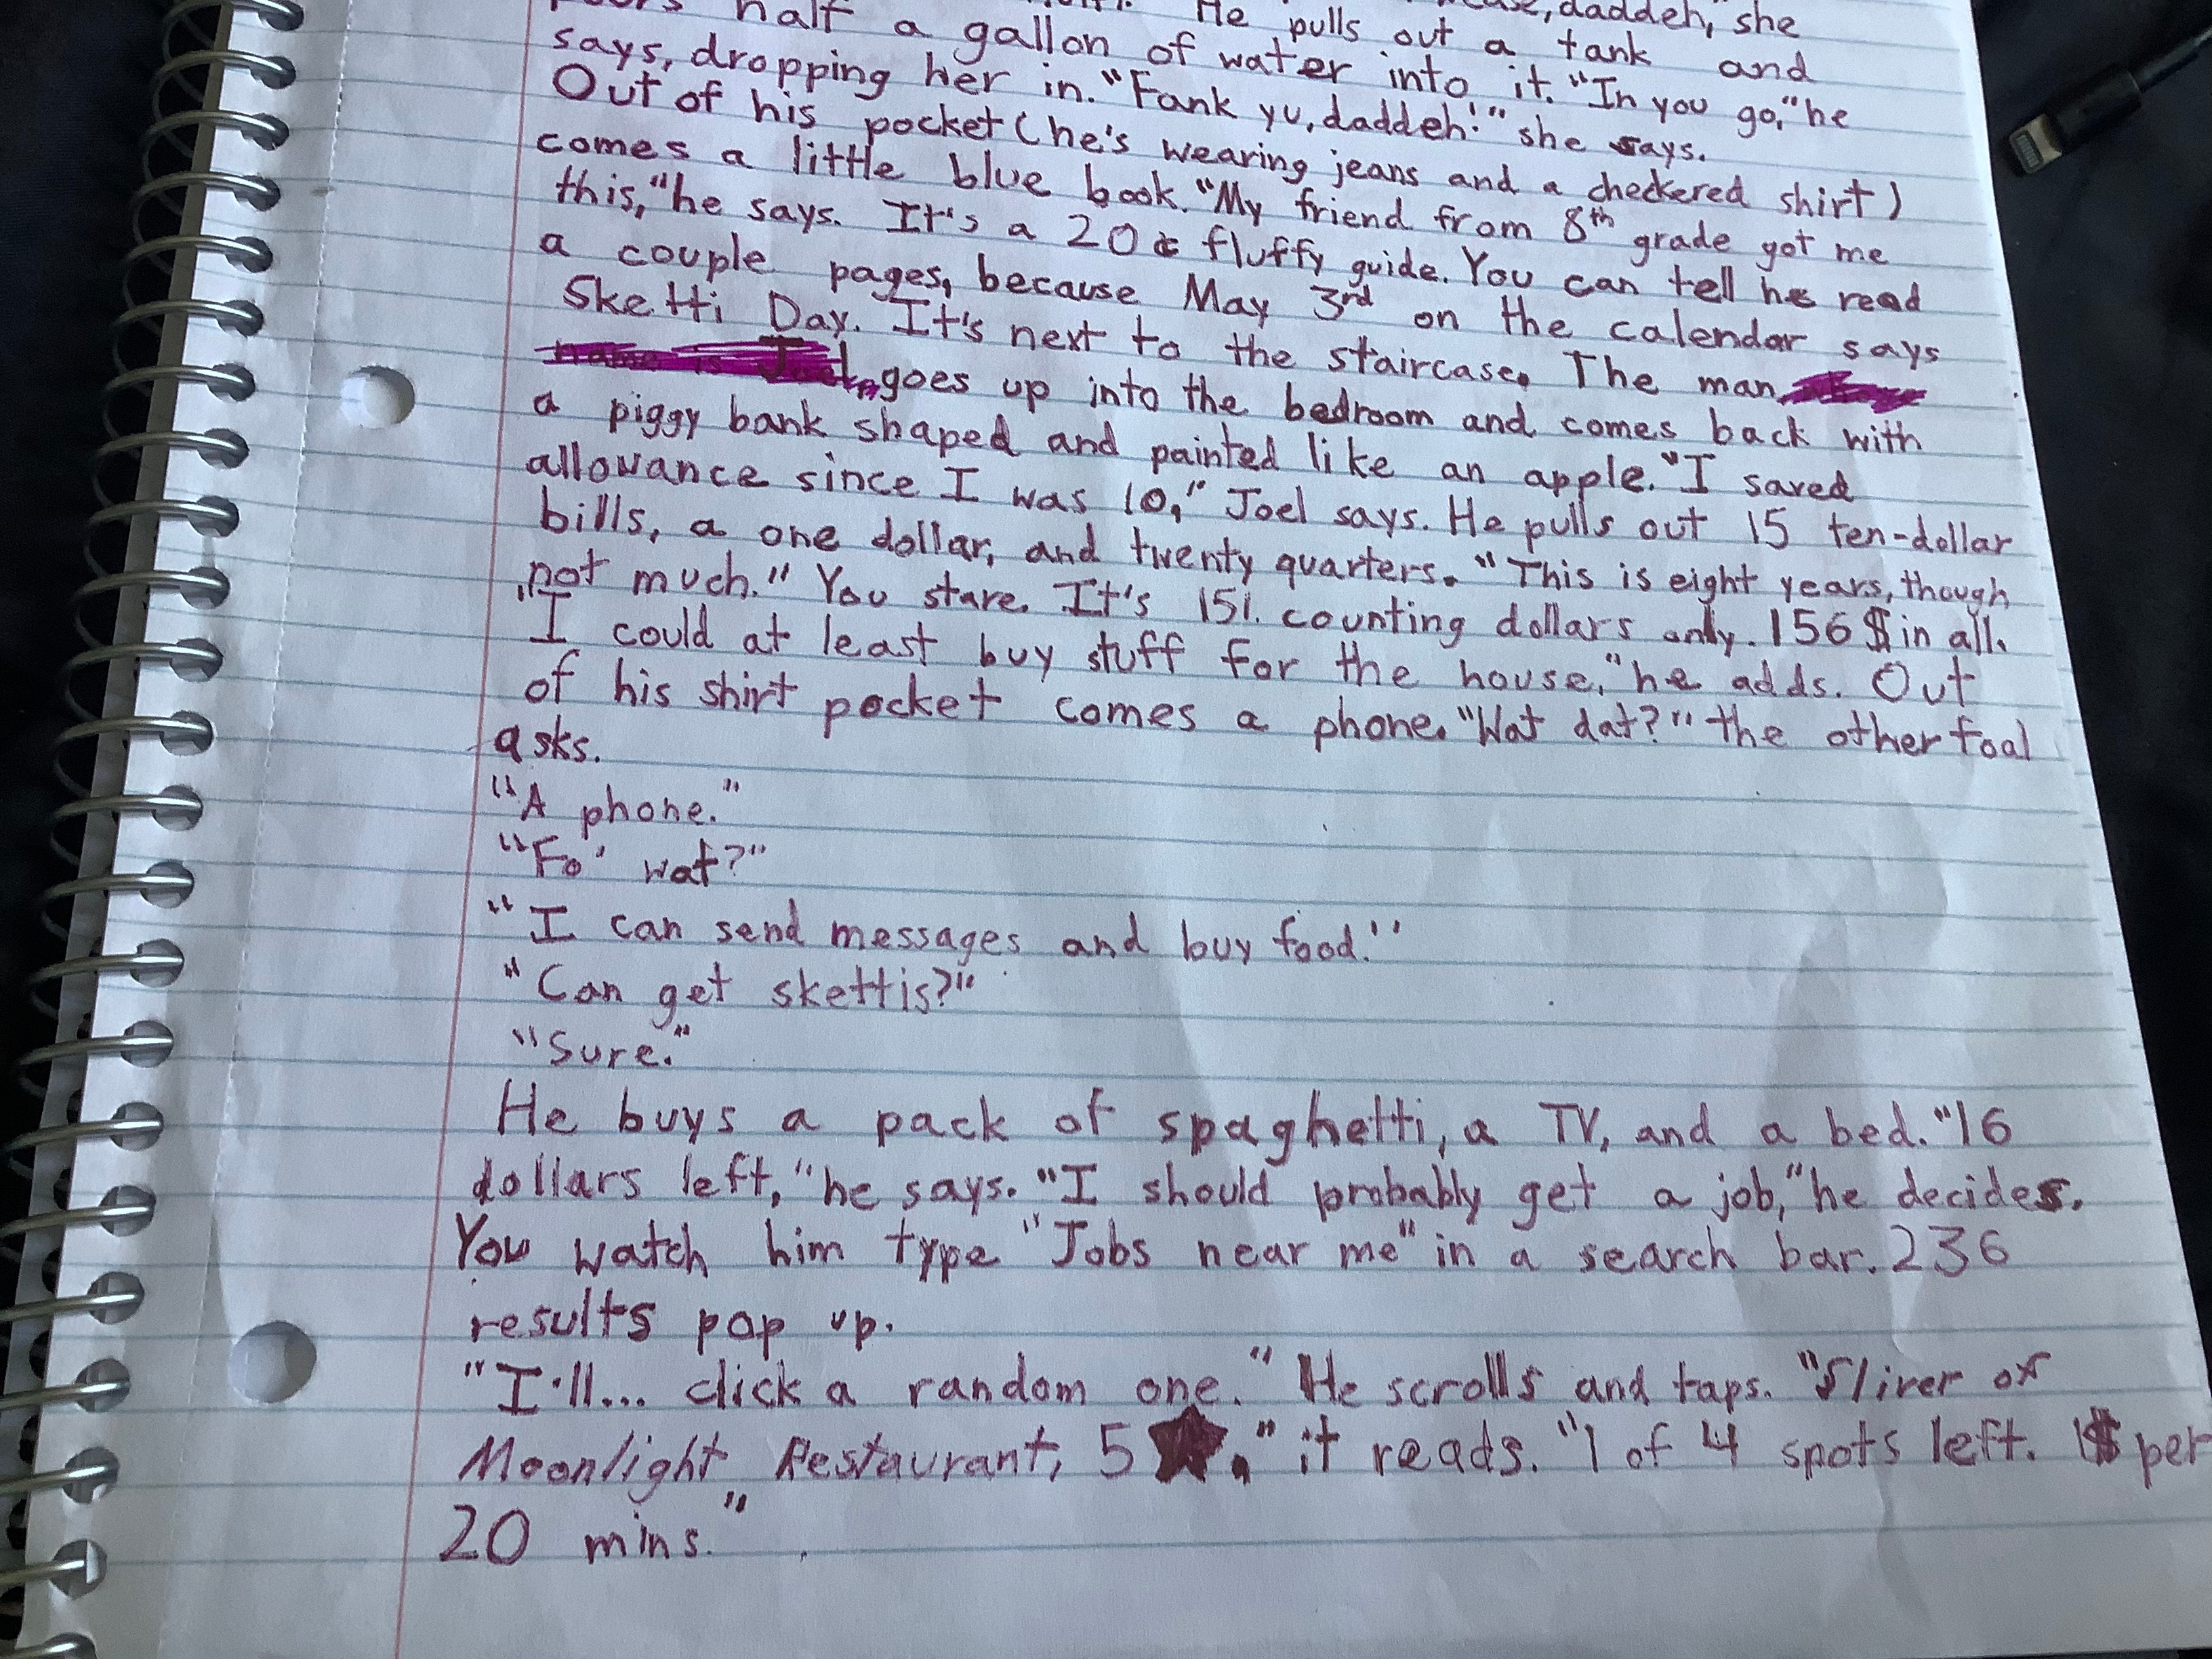 daddeh," she
He pulls out a tank and
half a gallon of water into it. "In you go," he
says, dropping her in. "Fank yu, daddeh!" she says.
Out of his pocket (he's wearing jeans and a checkered shirt)
comes a little blue book. "My friend from 8th grade got me
this," he says. It's a 20¢ fluffy guide. You can tell he read
a couple pages, because May 3rd on the calendar says
Sketti Day. It's next to the staircase. The man
goes up into the bedroom and comes back with
a piggy bank shaped and painted like an apple. "I saved
allowance since I was 10," Joel says. He pulls out 15 ten-dollar
bills, a one dollar, and twenty quarters. "This is eight years, though
not much." You stare. It's 151. counting dollars only. 156$ in all.
"I could at least buy stuff for the house," he adds. Out
of his shirt pocket comes a phone. "Wat dat?" the other foal
asks.
"A phone."
"Fo' wat?"
"I can send messages and buy food."
"Can get skettis?"
"Sure."
He buys a pack of spaghetti, a TV, and a bed. "16
dollars left," he says. "I should probably get a job," he decides.
You watch him type "Jobs near me" in a search bar. 236
results pop up.
"I'll... click a random one." He scrolls and taps. "Sliver of
Moonlight Restaurant, 5★," it reads. "1 of 4 spots left. 1$ per
20 mins."